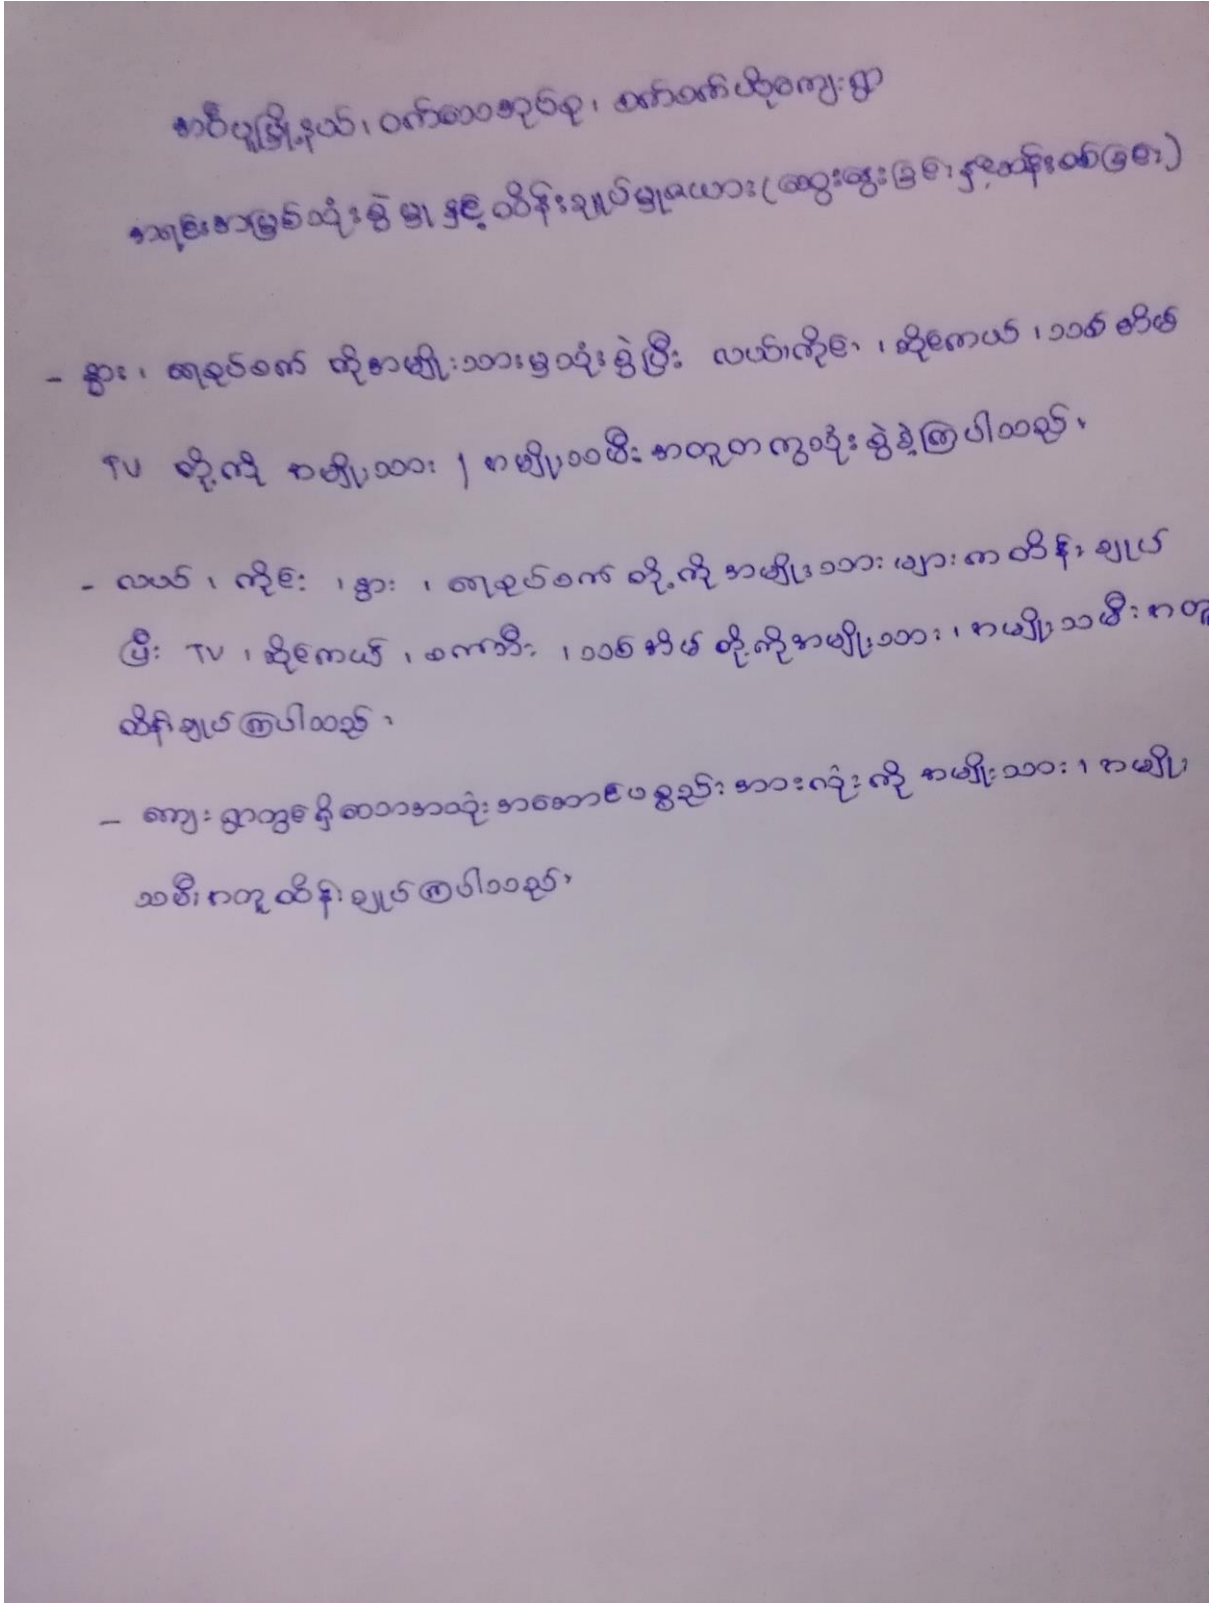 စာပြီပူမြို့နယ်၊ ဝက်သေအုပ်စု၊ စက်စက်ပိုကျေးရွာ
အရင်းအမြစ်သုံးစွဲမှု နှင့် ထိန်းချုပ်မှုဇယား (ဆွေးနွေးခြင်း နှင့်ဆန်းစစ်ခြင်း)
- နွား၊ ရေစုပ်စက် ကိုအမျိုးသားမှသုံးစွဲပြီး လယ်၊ကိုင်း ၊ ဆိုင်ကယ် ၊ သစ်အိမ်
TV တို့ကို အမျိုးသား / အမျိုးသမီး အတူတကွသုံးစွဲခဲ့ကြပါသည်။
- လယ် ၊ ကိုင်း ၊ နွား ၊ ရေစုပ်စက် တို့ကို အမျိုးသားများက ထိန်းချုပ်
ပြီး TV ၊ ဆိုင်ကယ် ၊ စက်ဘီး ၊ သစ်အိမ် တို့ကိုအမျိုးသား ၊ အမျိုးသမီး အတူ
ထိန်းချုပ်ကြပါသည်။
- ကျေးရွာတွင်ရှိသောအသုံးအဆောင်ပစ္စည်းအားလုံးကို အမျိုးသား ၊ အမျိုး
သမီးအတူထိန်းချုပ်ကြပါသည်။